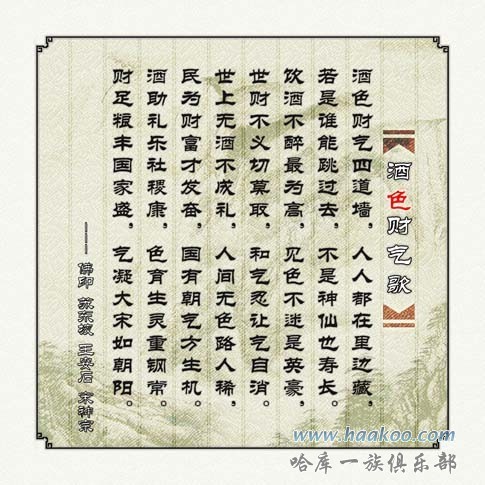 酒色财气歌
酒色财气四道墙，人人都在里边藏，
若是谁能跳过去，不是神仙也寿长。
饮酒不醉最为高，见色不迷是英豪，
世财不义切莫取，和气忍让气自消。
世上无酒不成礼，人间无色路人稀，
民为财富才发奋，国有朝气方生机。
酒助礼乐社稷康，色育生灵重钢常。
财足粮丰国家盛，气凝大宋如朝阳。
——佛印 苏东坡 王安石 宋神宗
www.haakoo.com
哈库一族俱乐部